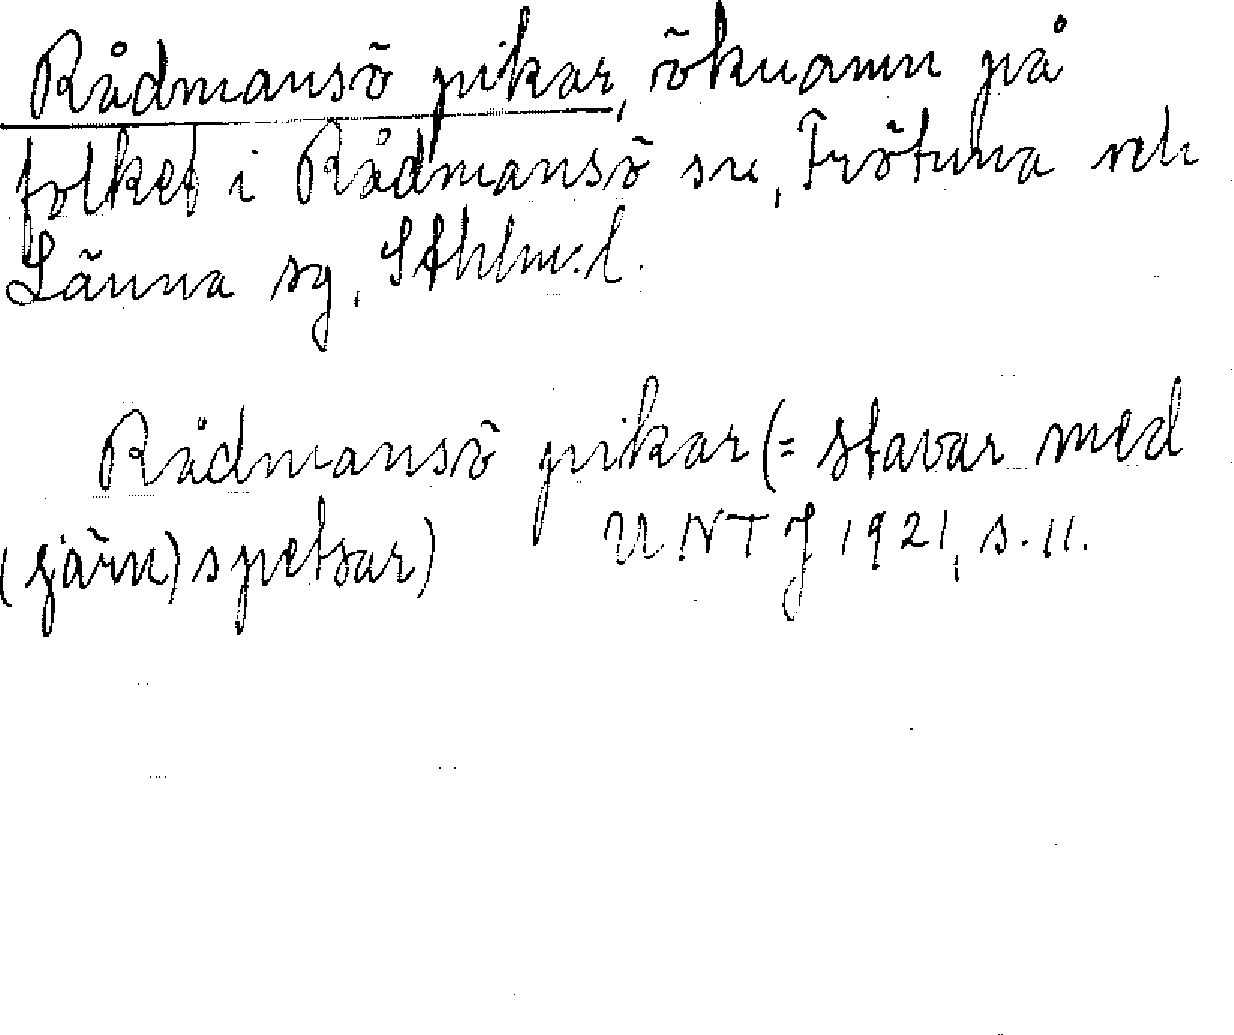 Rådmansö pikar, öknamn på
folket i Rådmansö sn, Frötuna och
Länna sg, Sthlms.l.
Rådmansö pikar (= stavar med
(järn) spetsar) UNTJ 1921, s. 11.